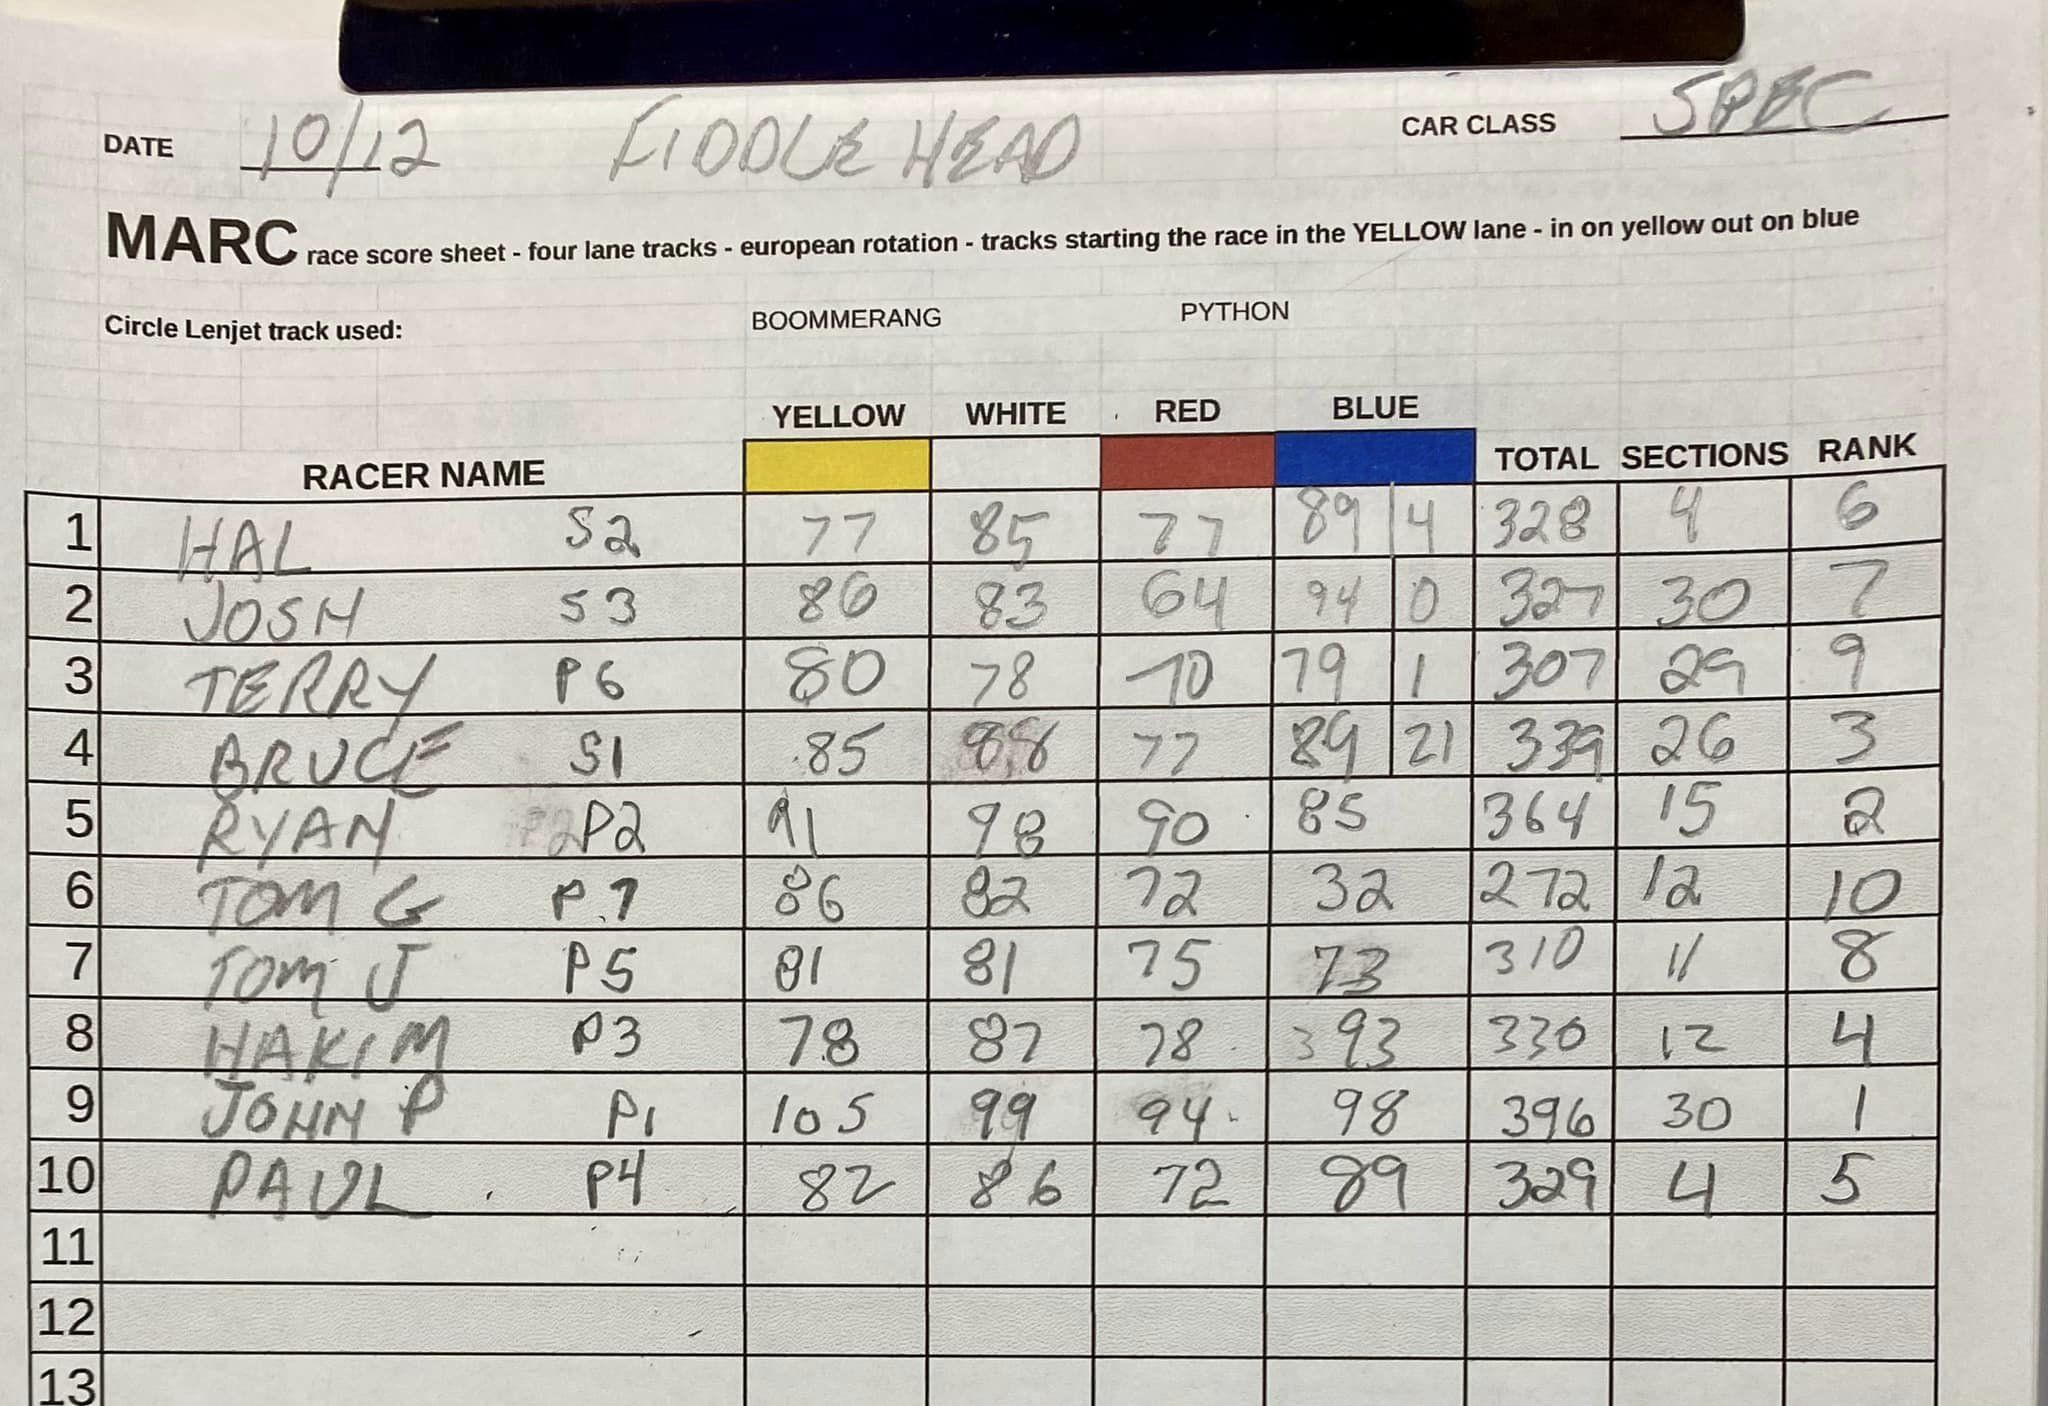 DATE 10/12 FIDDLE HEAD CAR CLASS SPEC
MARC race score sheet - four lane tracks - european rotation - tracks starting the race in the YELLOW lane - in on yellow out on blue
Circle Lenjet track used: BOOMMERANG PYTHON
YELLOW WHITE RED BLUE
RACER NAME TOTAL SECTIONS RANK
1 HAL S2 77 85 77 89 4 328 4 6
2 JOSH S3 86 83 64 94 0 327 30 7
3 TERRY P6 80 78 70 79 1 307 29 9
4 BRUCE S1 85 88 77 89 21 339 26 3
5 RYAN P2 91 98 90 85 364 15 2
6 TOM G P.7 86 82 72 32 272 12 10
7 TOM J P5 81 81 75 73 310 11 8
8 HAKIM P3 78 87 78 3 93 330 12 4
9 JOHN P P1 105 99 94 98 396 30 1
10 PAUL P4 82 86 72 89 329 4 5
11
12
13